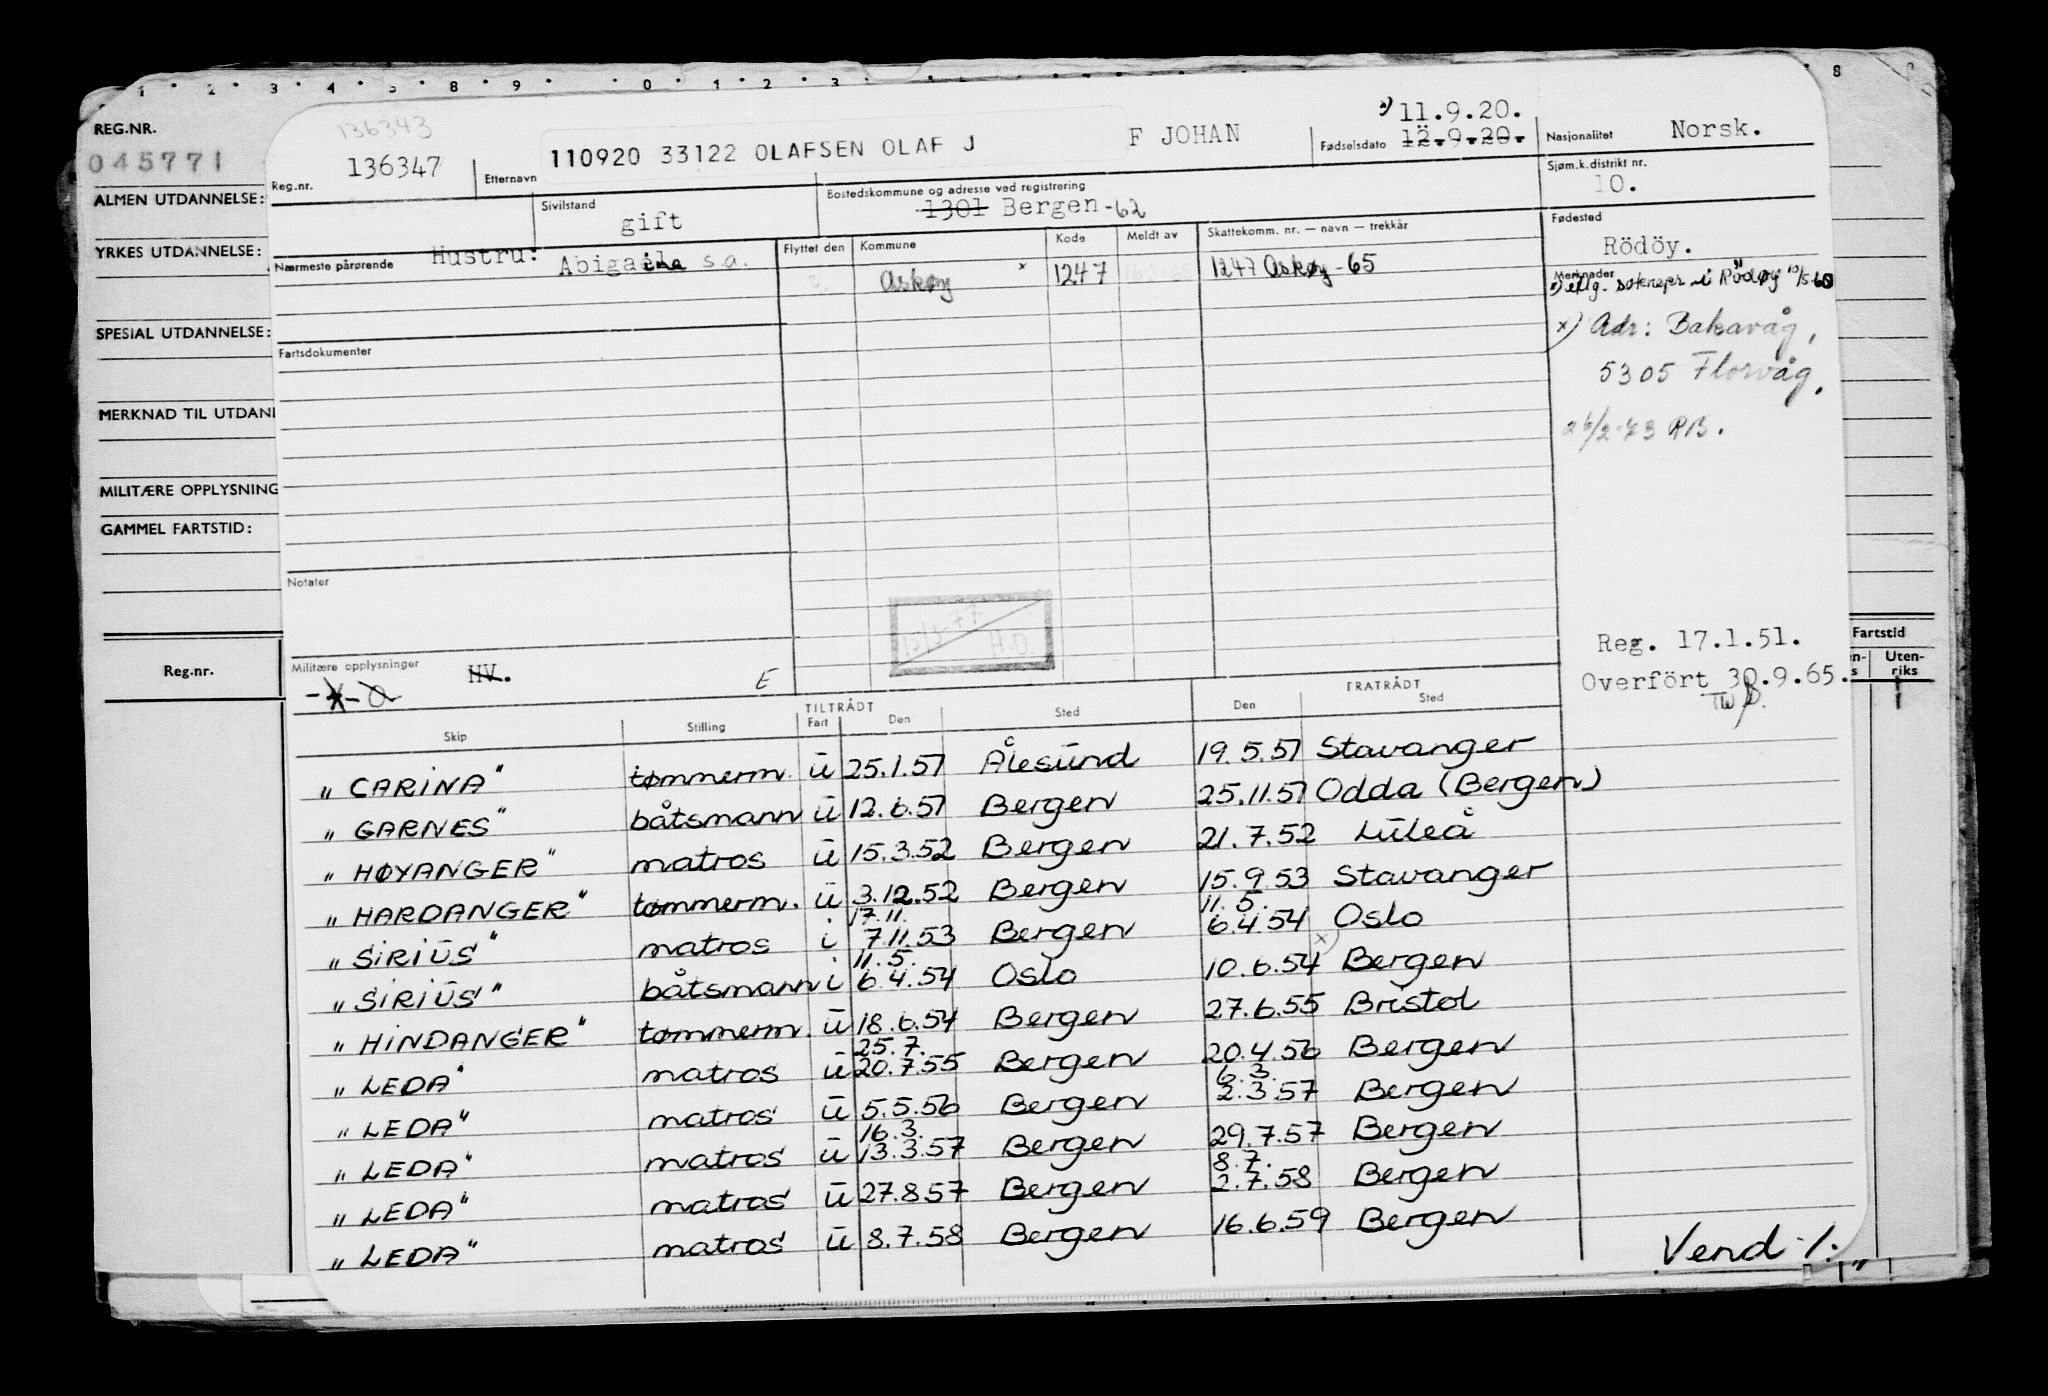 1 2 3 4 5 8 9 0 1 2 3 8
REG.NR.
045771
ALMEN UTDANNELSE:
YRKES UTDANNELSE:
SPESIAL UTDANNELSE:
MERKNAD TIL UTDAN
MILITÆRE OPPLYSNING
GAMMEL FARTSTID:
Reg.nr.
Fartstid
Uten-
riks
136343
Reg.nr. 136347 Etternavn 110920 33122 OLAFSEN OLAF J F JOHAN
11.9.20.
Fødselsdato 12.9.20. Nasjonalitet Norsk.
Sivilstand gift
Bostedskommune og adresse ved registrering
1301 Bergen -62
Sjøm.k.distrikt nr.
10.
Fødested
Rödöy.
Nærmeste pårørende Hustru: Abigaele s.a.
Flyttet den Kommune Kode Meldt av Skattekomm. nr. — navn — trekkår
Askøy x 1247 1247 Askøy -65
Merknader
x) Adr: Bakavåg,
5305 Florvåg.
26/2-73 RB.
Fartsdokumenter
Notater
15/3-77 H.O.
Militære opplysninger HV. E
Reg. 17.1.51.
Overfört 30.9.65.
TILTRÅDT FRATRÅDT
Skip Stilling Fart Den Sted Den Sted
"CARINA" tømmerm. u 25.1.51 Ålesund 19.5.51 Stavanger
"GARNES" båtsmann u 12.6.51 Bergen 25.11.51 Odda (Bergen)
"HØYANGER" matros u 15.3.52 Bergen 21.7.52 Luleå
"HARDANGER" tømmerm. u 3.12.52 Bergen 15.9.53 Stavanger
17.11. 11.5.
"SIRIUS" matros i 7.11.53 Bergen 6.4.54 Oslo
11.5. x)
"SIRIUS" båtsmann i 6.4.54 Oslo 10.6.54 Bergen
"HINDANGER" tømmerm. u 18.6.54 Bergen 27.6.55 Bristol
25.7.
"LEDA" matros u 20.7.55 Bergen 20.4.56 Bergen
6.3.
"LEDA" matros u 5.5.56 Bergen 2.3.57 Bergen
16.3.
"LEDA" matros u 13.3.57 Bergen 29.7.57 Bergen
8.7.
"LEDA" matros u 27.8.57 Bergen 2.7.58 Bergen
"LEDA" matros u 8.7.58 Bergen 16.6.59 Bergen
Vend ./.